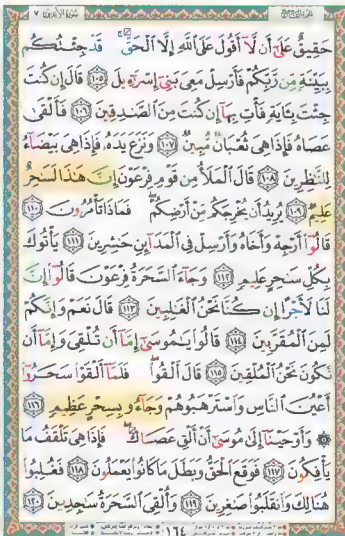 سورة الأعراف ٧
الجزء التاسع
حَقِيقٌ عَلَىٰ أَن لَّا أَقُولَ عَلَى اللَّهِ إِلَّا الْحَقَّ ۚ قَدْ جِئْتُكُم
بِبَيِّنَةٍ مِّن رَّبِّكُمْ فَأَرْسِلْ مَعِيَ بَنِي إِسْرَائِيلَ ١٠٥ قَالَ إِن كُنتَ
جِئْتَ بِآيَةٍ فَأْتِ بِهَا إِن كُنتَ مِنَ الصَّادِقِينَ ١٠٦ فَأَلْقَىٰ
عَصَاهُ فَإِذَا هِيَ ثُعْبَانٌ مُّبِينٌ ١٠٧ وَنَزَعَ يَدَهُ فَإِذَا هِيَ بَيْضَاءُ
لِلنَّاظِرِينَ ١٠٨ قَالَ الْمَلَأُ مِن قَوْمِ فِرْعَوْنَ إِنَّ هَٰذَا لَسَاحِرٌ
عَلِيمٌ ١٠٩ يُرِيدُ أَن يُخْرِجَكُم مِّنْ أَرْضِكُمْ ۖ فَمَاذَا تَأْمُرُونَ ١١٠
قَالُوا أَرْجِهْ وَأَخَاهُ وَأَرْسِلْ فِي الْمَدَائِنِ حَاشِرِينَ ١١١ يَأْتُوكَ
بِكُلِّ سَاحِرٍ عَلِيمٍ ١١٢ وَجَاءَ السَّحَرَةُ فِرْعَوْنَ قَالُوا إِنَّ
لَنَا لَأَجْرًا إِن كُنَّا نَحْنُ الْغَالِبِينَ ١١٣ قَالَ نَعَمْ وَإِنَّكُمْ
لَمِنَ الْمُقَرَّبِينَ ١١٤ قَالُوا يَا مُوسَىٰ إِمَّا أَن تُلْقِيَ وَإِمَّا أَن
نَّكُونَ نَحْنُ الْمُلْقِينَ ١١٥ قَالَ أَلْقُوا ۖ فَلَمَّا أَلْقَوْا سَحَرُوا
أَعْيُنَ النَّاسِ وَاسْتَرْهَبُوهُمْ وَجَاءُو بِسِحْرٍ عَظِيمٍ ١١٦
۞ وَأَوْحَيْنَا إِلَىٰ مُوسَىٰ أَنْ أَلْقِ عَصَاكَ ۖ فَإِذَا هِيَ تَلْقَفُ مَا
يَأْفِكُونَ ١١٧ فَوَقَعَ الْحَقُّ وَبَطَلَ مَا كَانُوا يَعْمَلُونَ ١١٨ فَغُلِبُوا
هُنَالِكَ وَانقَلَبُوا صَاغِرِينَ ١١٩ وَأُلْقِيَ السَّحَرَةُ سَاجِدِينَ ١٢٠
١٦٤